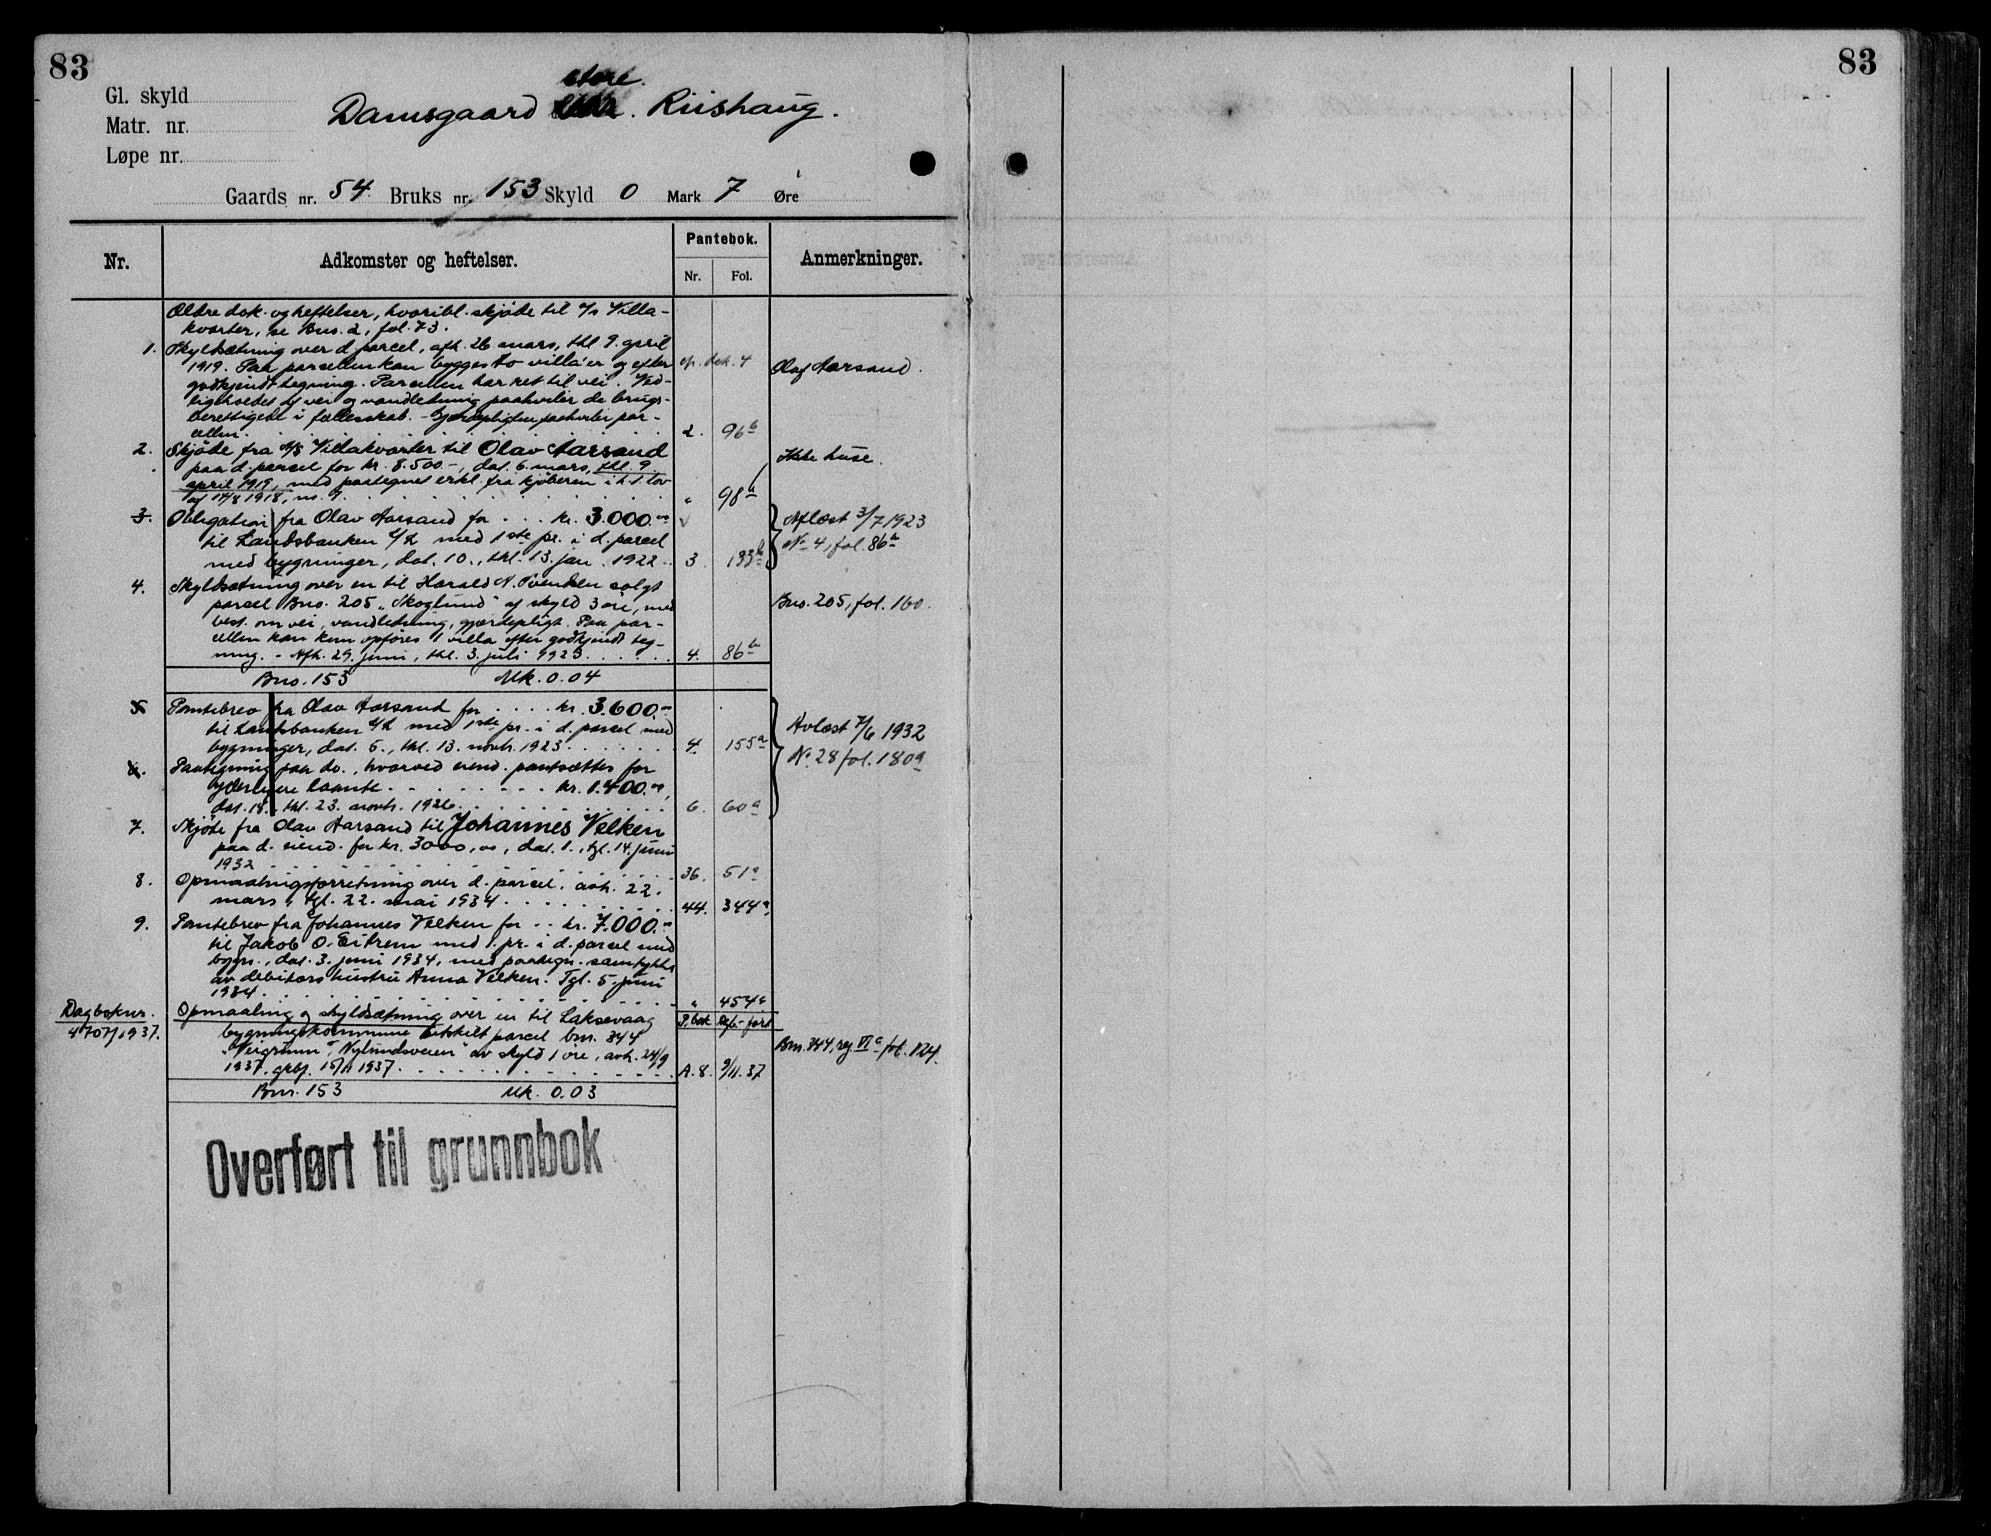 83
83
Gl. skyld
Matr. nr.
Løpe nr.
store.
Damsgaard . Riishaug.
Gaards nr. 54. Bruks nr. 153 Skyld 0 Mark 7 Øre
Nr.
Adkomster og heftelser.
Pantebok.
Nr. Fol.
Anmerkninger.
Ældre dok. og heftelser, hvoribl. skjøde til A/S Villa-
kvarter, se Bno. 2, fol. 73.
1. Skyldsætning over d. parcel, afh. 26 mars, thl. 9. april
1919. Paa parcellen kan bygges to villa'er og efter dok. 4 Olaf Aarsand.
godkjendt tegning. Parcellen har ret til vei. Ved-
ligeholdet af vei og vandledning paahviler de brugs-
berettigede i fællesskab. - Gjærdepligten paahviler par-
cellen. 2. 96 b
2. Skjøde fra A/S Villakvarter til Olav Aarsand Ikke huse.
paa d. parcel for kr. 8.500.-, dat. 6. mars, thl. 9.
april 1919, med paategnet erkl. fra kjøberen i h. t. lov
af 1918, nr. 9. " 98 a
3. Obligation fra Olav Aarsand for kr. 3.000.00 Aflæst 3/7 1923
til Landsbanken A/S med 1ste pr. i d. parcel No 4, fol. 86 a
med bygninger, dat. 10., thl. 13. jan. 1922. 3 193 b
4. Skyldsætning over en til Harald N. solgt
parcel Bno. 205 "Skoglund" af skyld 3 øre, med Bno. 205, fol. 160.
best. om vei, vandledning, gjærdepligt. Paa par-
cellen kan kun opføres 1 villa efter godkjendt teg-
ning. - Afh. 29. juni, thl. 3. juli 1923. 4. 86 b
Bno. 153 Mk. 0.04
5 Pantebrev fra Olav Aarsand for kr. 3.600.00
til Landsbanken A/S med 1ste pr. i d. parcel med Avlæst 7/6 1932
bygninger, dat. 6., thl. 13. novbr. 1923. 4. 155 a
No. 28 fol. 180 a
6. Paategning paa do., hvorved eiend. pantsættes for
yderligere laante kr. 1.400.00,
dat. 18., thl. 23. novbr. 1926. 6. 60 a
7. Skjøte fra Olav Aarsand til Johannes Velken
paa d. eiend. for kr. 3000,00, dat. 1., tgl. 14. juni
1932 36. 51 a
8. Opmaalingsforretning over d. parcel, avh. 22.
mars, tgl. 22. mai 1934. 44. 344 a,
9. Pantebrev fra Johannes Velken for kr. 7.000.00
til Jakob O. Eitrem med 1. pr. i d. parcel med
bygn., dat. 3. juni 1934, med paategn. samtykke
av debitors hustru Anna Velken. Tgl. 5. juni
1934. " 454 a
Dagboknr.
4707/1937. Opmaaling og skyldsætning over en til Laksevaag P. bok
bygningskommune utskilt parcel bnr. 344
"Veigrunn", Nylundsveien" av skyld 1 øre, avh. 24/9 Bnr. 344, reg VI c fol. 124.
1937. 15/11 1937. A. 8. 9/11. 37
Bnr. 153 Mk. 0.03
Overført til grunnbok